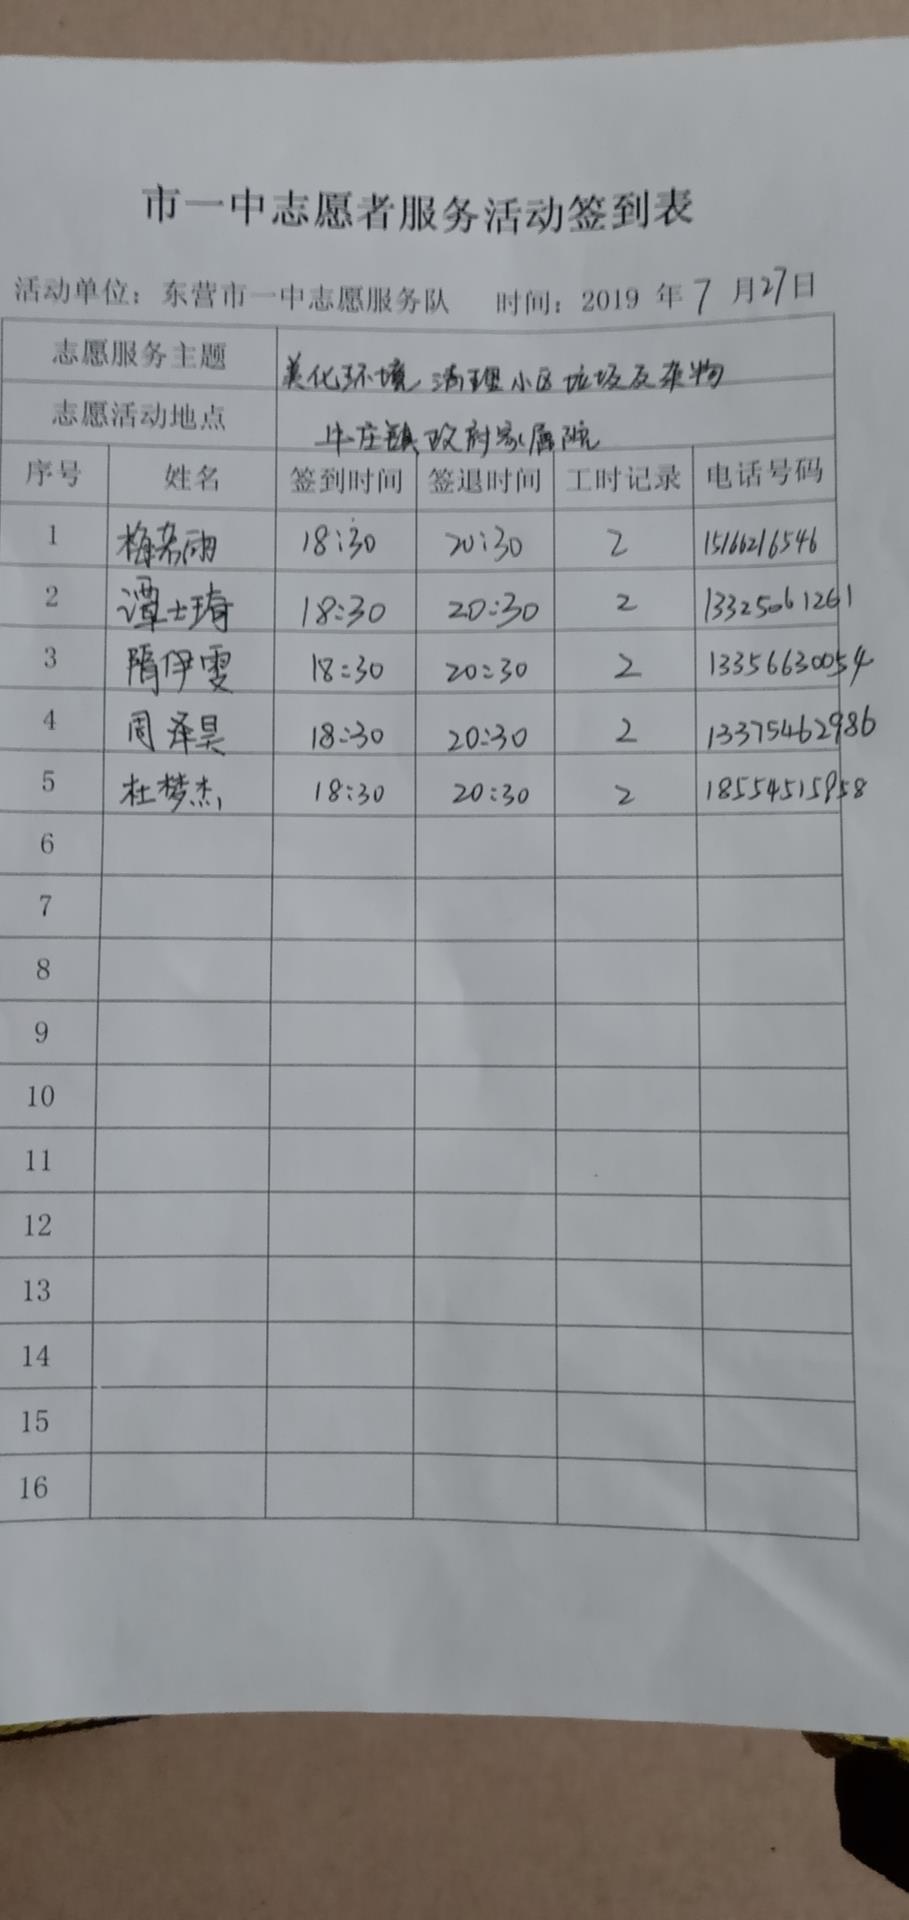 市一中志愿者服务活动签到表
活动单位：东营市一中志愿服务队 时间：2019 年 7 月 27 日
志愿服务主题 美化环境 清理小区垃圾及杂物
志愿活动地点 牛庄镇政府家属院
序号 姓名 签到时间 签退时间 工时记录 电话号码
1 梅若雨 18:30 20:30 2 15166216546
2 谭士琦 18:30 20:30 2 13325061261
3 隋伊雯 18:30 20:30 2 13356630054
4 周泽昊 18:30 20:30 2 13375462986
5 杜梦杰 18:30 20:30 2 18554515958
6
7
8
9
10
11
12
13
14
15
16